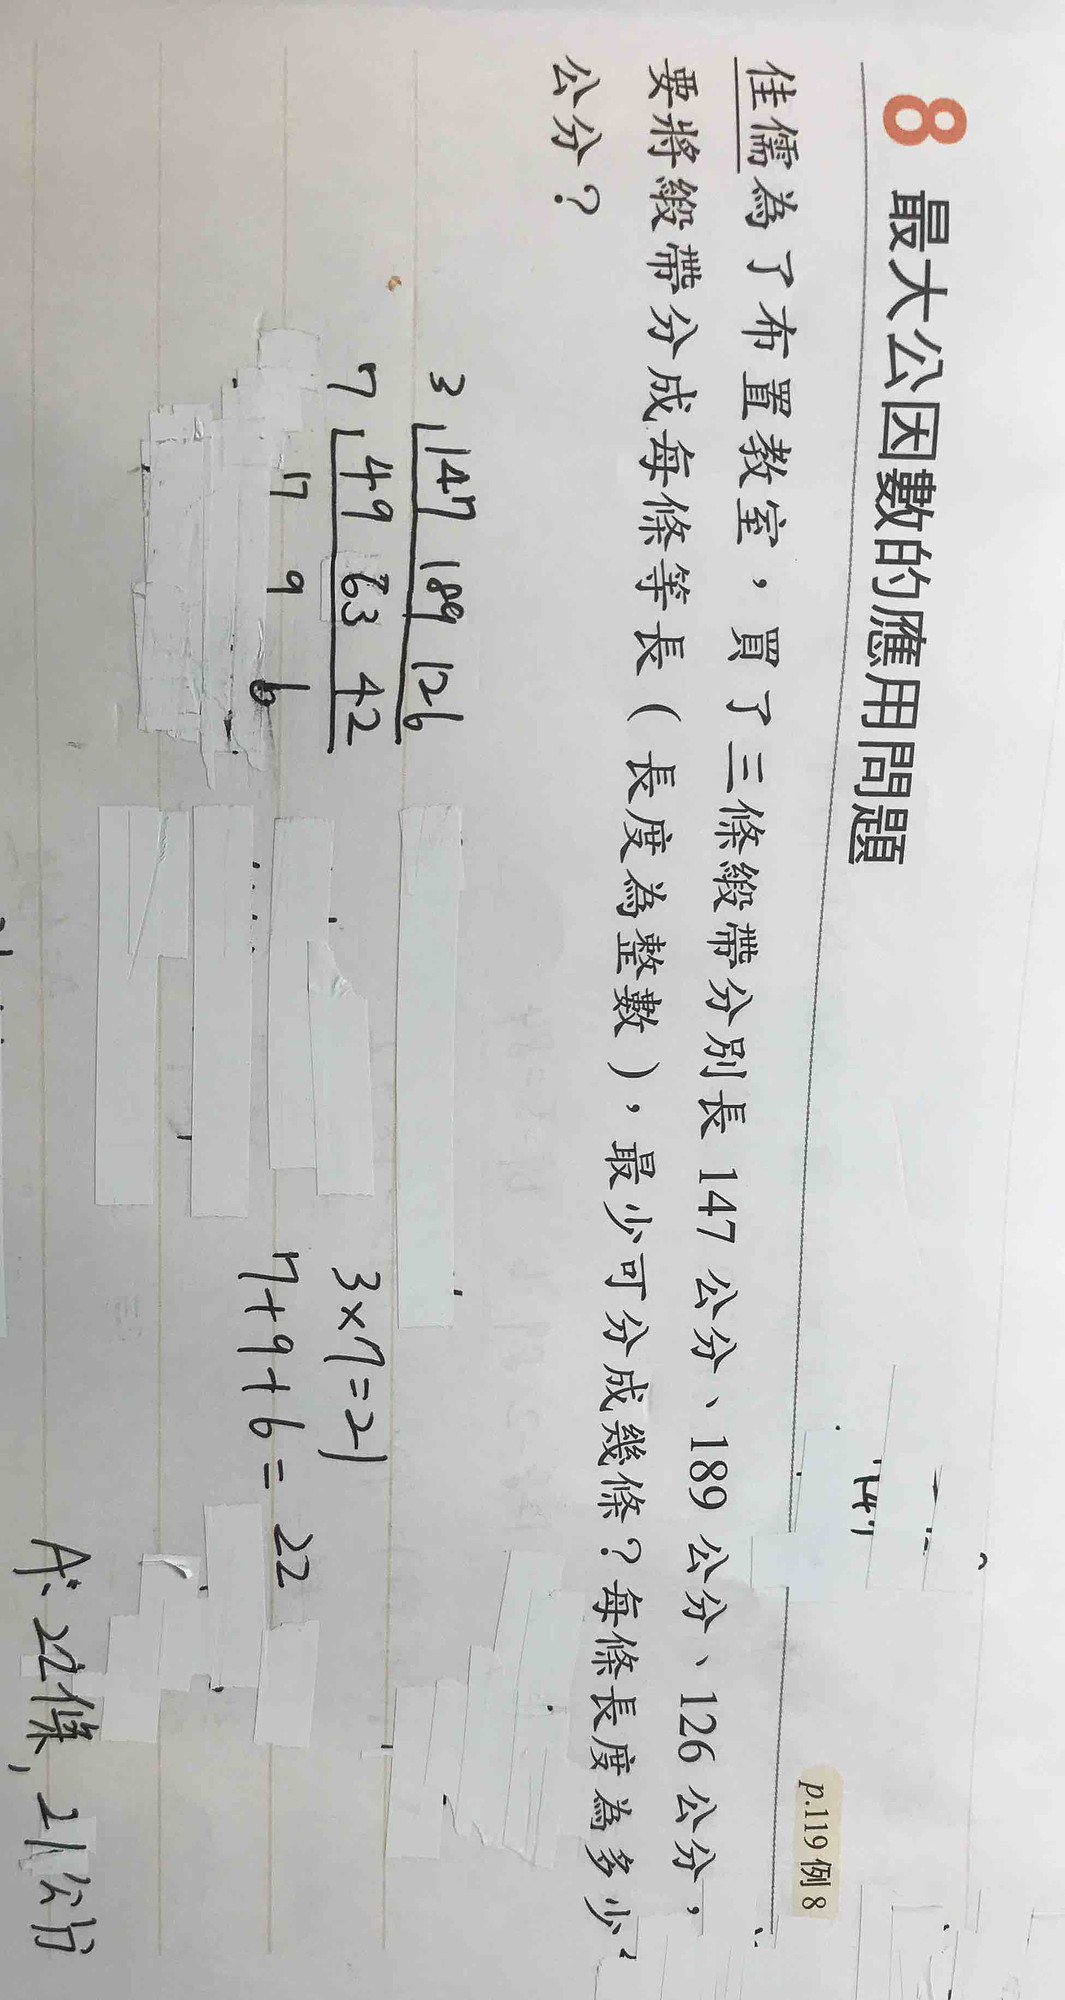 8 最大公因數的應用問題
p.119 例 8
佳儒為了布置教室，買了三條緞帶分別長 147 公分、189 公分、126 公分，
要將緞帶分成每條等長（長度為整數），最少可分成幾條？每條長度為多少
公分？
3 147 189 126
7 49 63 42
7 9 6
3×7=21
7+9+6=22
A: 22條, 21公分